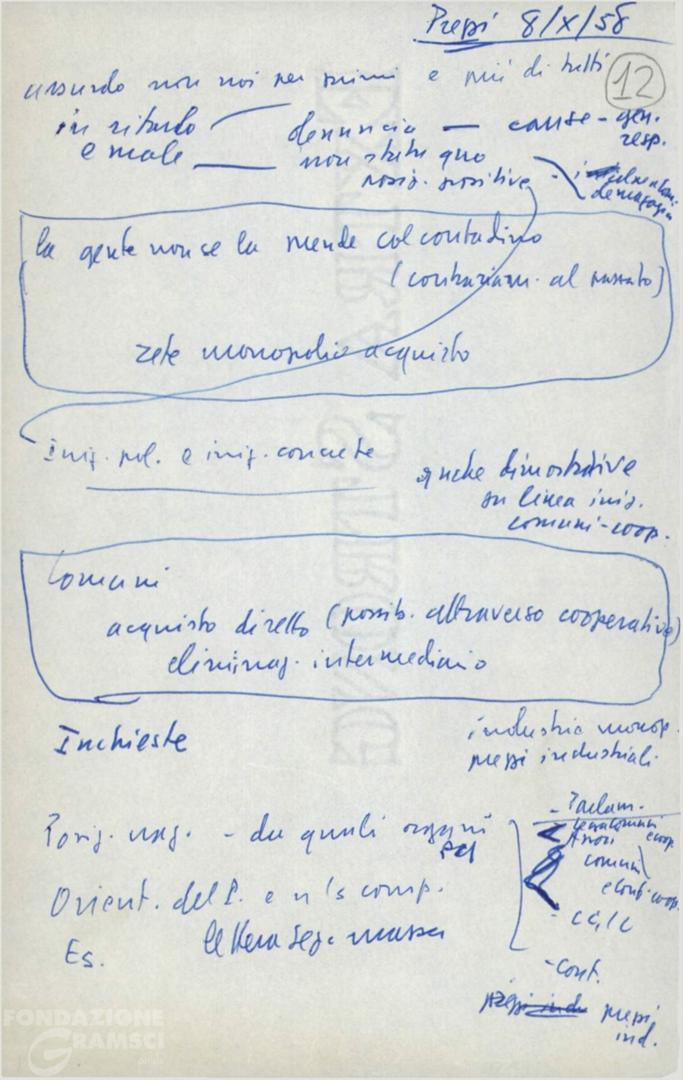 Prezzi 8/X/58
12
assurdo non noi per primi e più di tutti
in ritardo
e male
denuncia — cause - gen.
resp.
non statu quo
posiz. positive
demagogia
la gente non se la prende col contadino
(contrariam. al passato)
rete monopolio acquisto
Iniz. pol. e iniz. concrete
anche dimostrative
su linea iniz.
comuni-coop.
Comuni
acquisto diretto (possib. attraverso cooperative)
eliminaz. intermediario
Inchieste
industria monop.
prezzi industriali
Poriz. naz. - da quali organi
Orient. del P. e n/s comp.
lettera Seg. massa
Es.
- Parlam.
coop.
comuni
e cont. coop.
- CGIL
- cont.
prezzi
ind.
FONDAZIONE
GRAMSCI